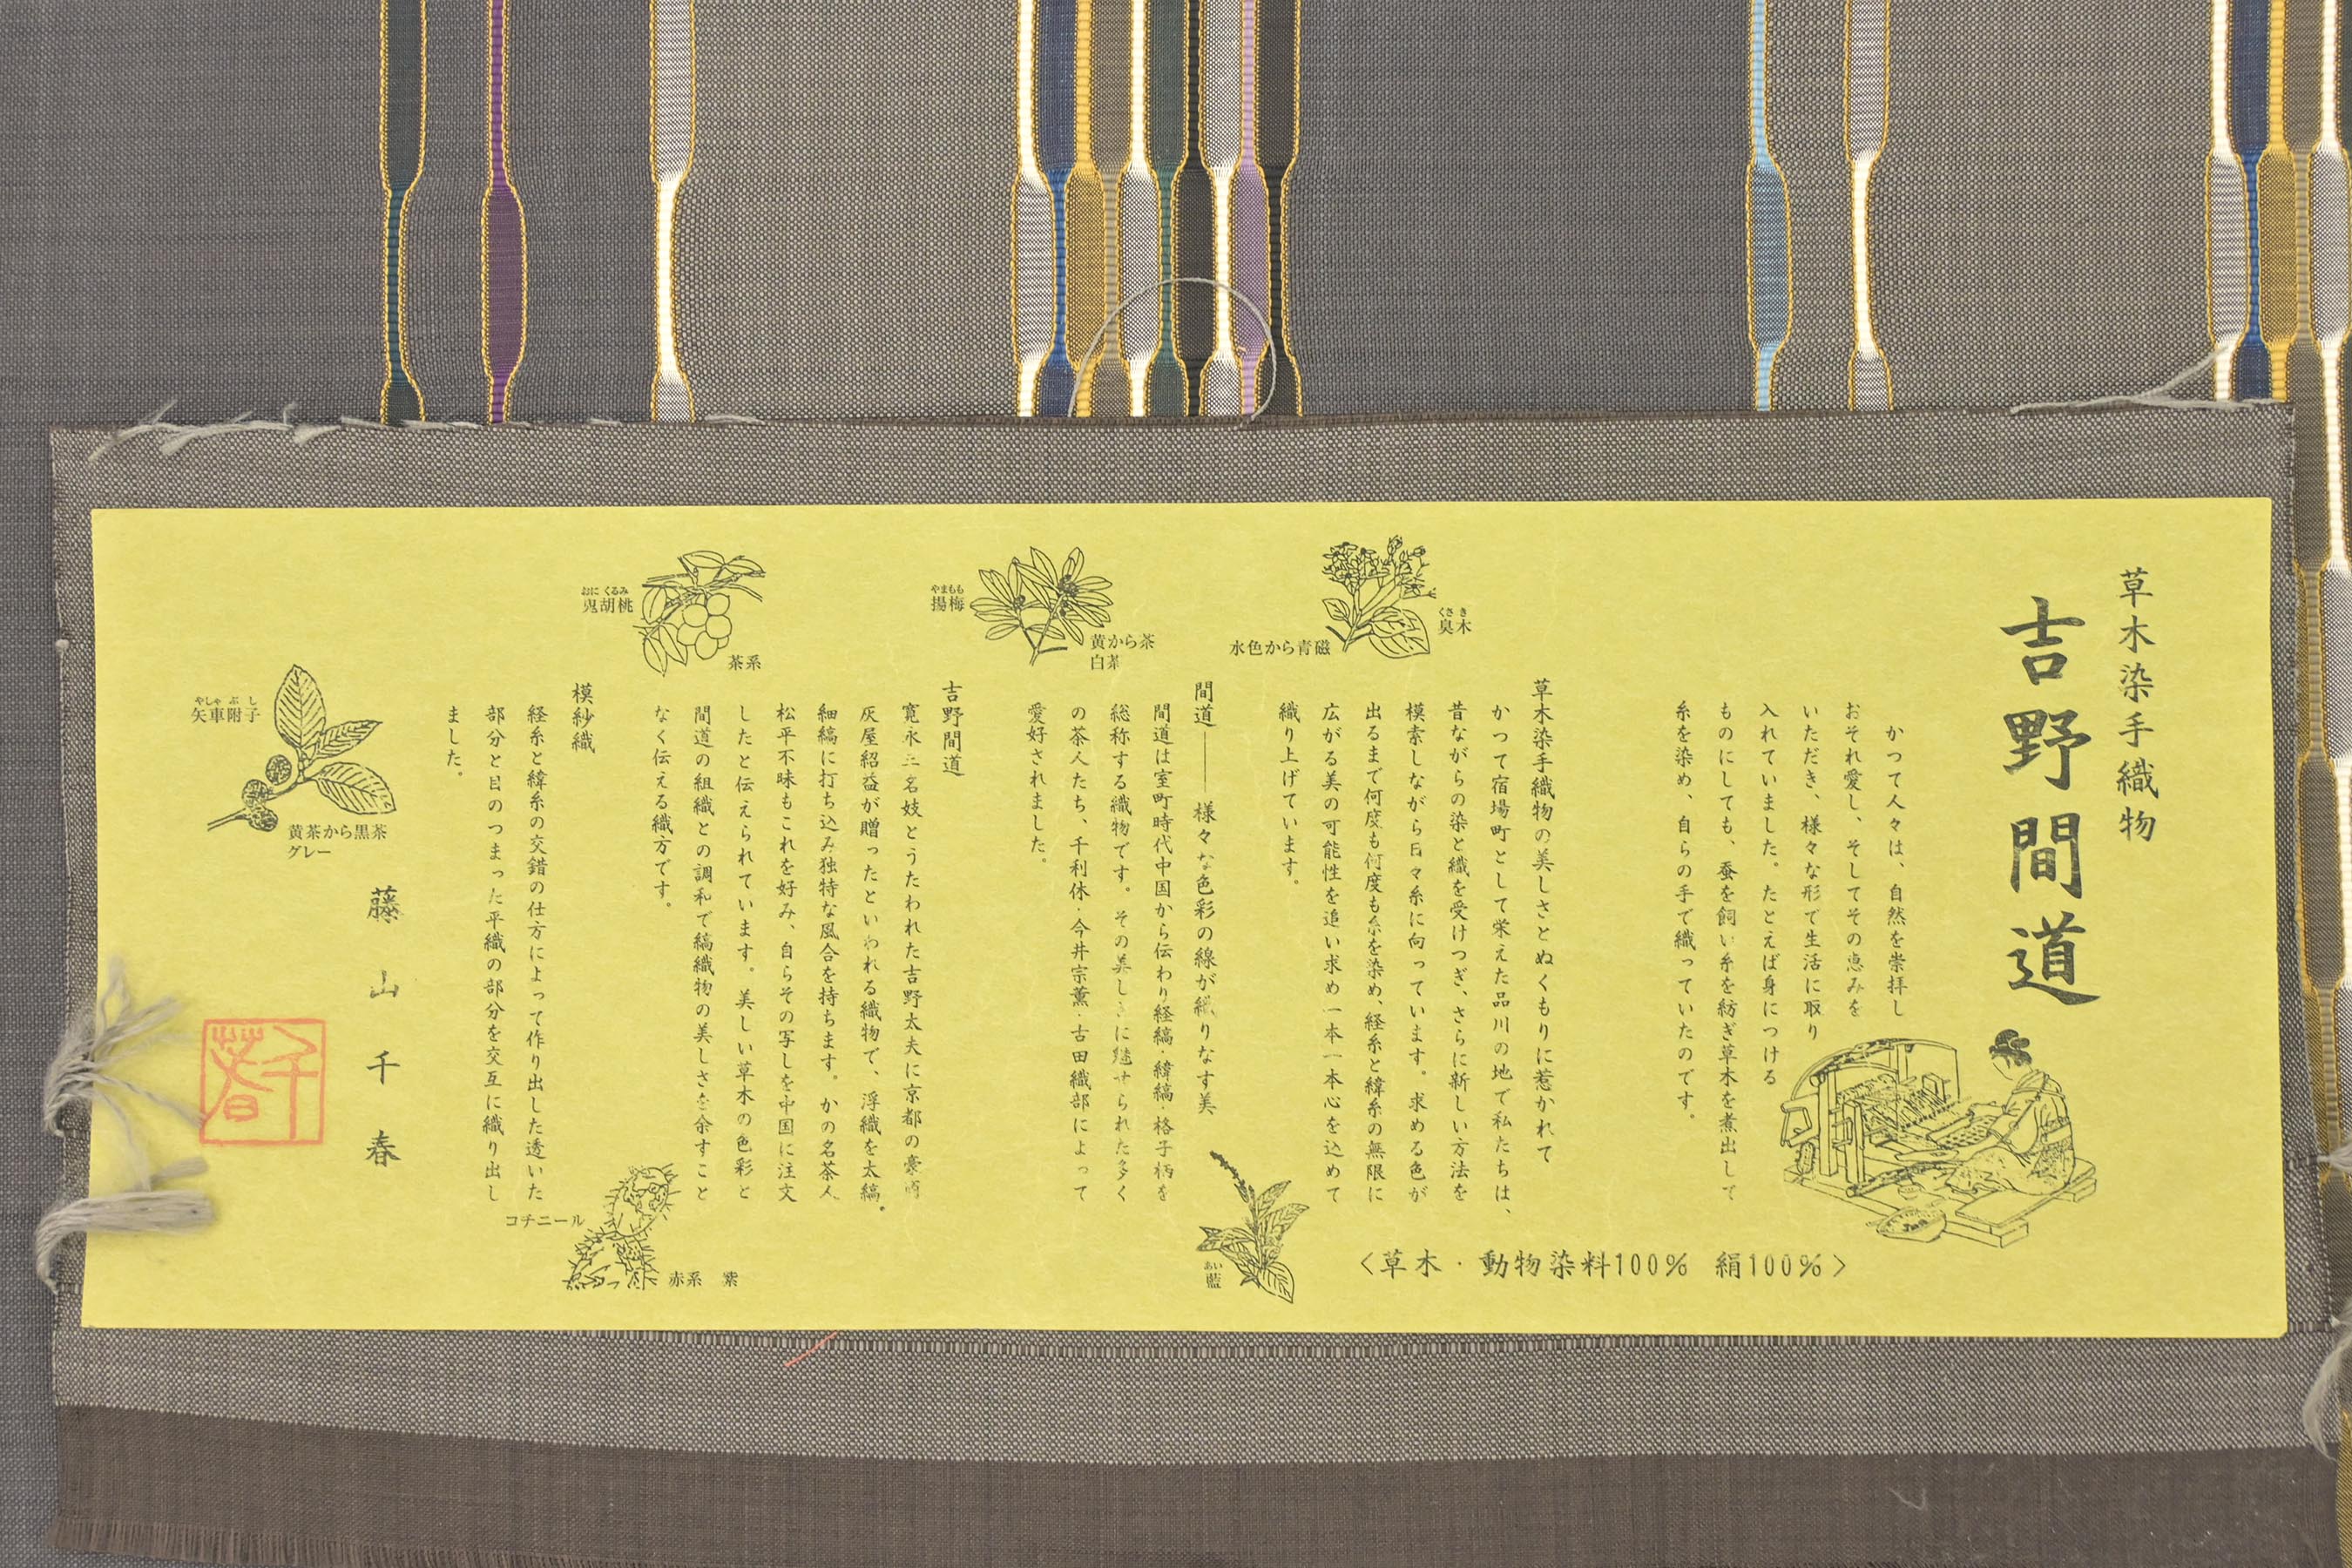 草木染手織物
吉野間道
かつて人々は、自然を崇拝し
おそれ愛し、そしてその恵みを
いただき、様々な形で生活に取り
入れていました。たとえば身につける
ものにしても、蚕を飼い糸を紡ぎ草木を煮出して
糸を染め、自らの手で織っていたのです。
〈草木・動物染料100% 絹100%〉
草木染手織物の美しさとぬくもりに惹かれて
かつて宿場町として栄えた品川の地で私たちは、
昔ながらの染と織を受けつぎ、さらに新しい方法を
模索しながら日々糸に向っています。求める色が
出るまで何度も何度も糸を染め、経糸と緯糸の無限に
広がる美の可能性を追い求め一本一本心を込めて
織り上げています。
くさき
臭木
水色から青磁
あい
藍
間道――様々な色彩の線が織りなす美
間道は室町時代中国から伝わり経縞・緯縞・格子柄を
総称する織物です。その美しさに魅せられた多く
の茶人たち、千利休・今井宗薫・古田織部によって
愛好されました。
やまもも
揚梅
黄から茶
白茶
吉野間道
寛永三名妓とうたわれた吉野太夫に京都の豪商
灰屋紹益が贈ったといわれる織物で、浮織を太縞、
細縞に打ち込み独特な風合を持ちます。かの名茶人
松平不昧もこれを好み、自らその写しを中国に注文
したと伝えられています。美しい草木の色彩と
間道の組織との調和で縞織物の美しさを余すこと
なく伝える織方です。
おにくるみ
鬼胡桃
茶系
模紗織
経糸と緯糸の交錯の仕方によって作り出した透いた
部分と目のつまった平織の部分を交互に織り出し
ました。
コチニール
赤系 紫
やしゃぶし
矢車附子
黄茶から黒茶
グレー
藤山千春
千春